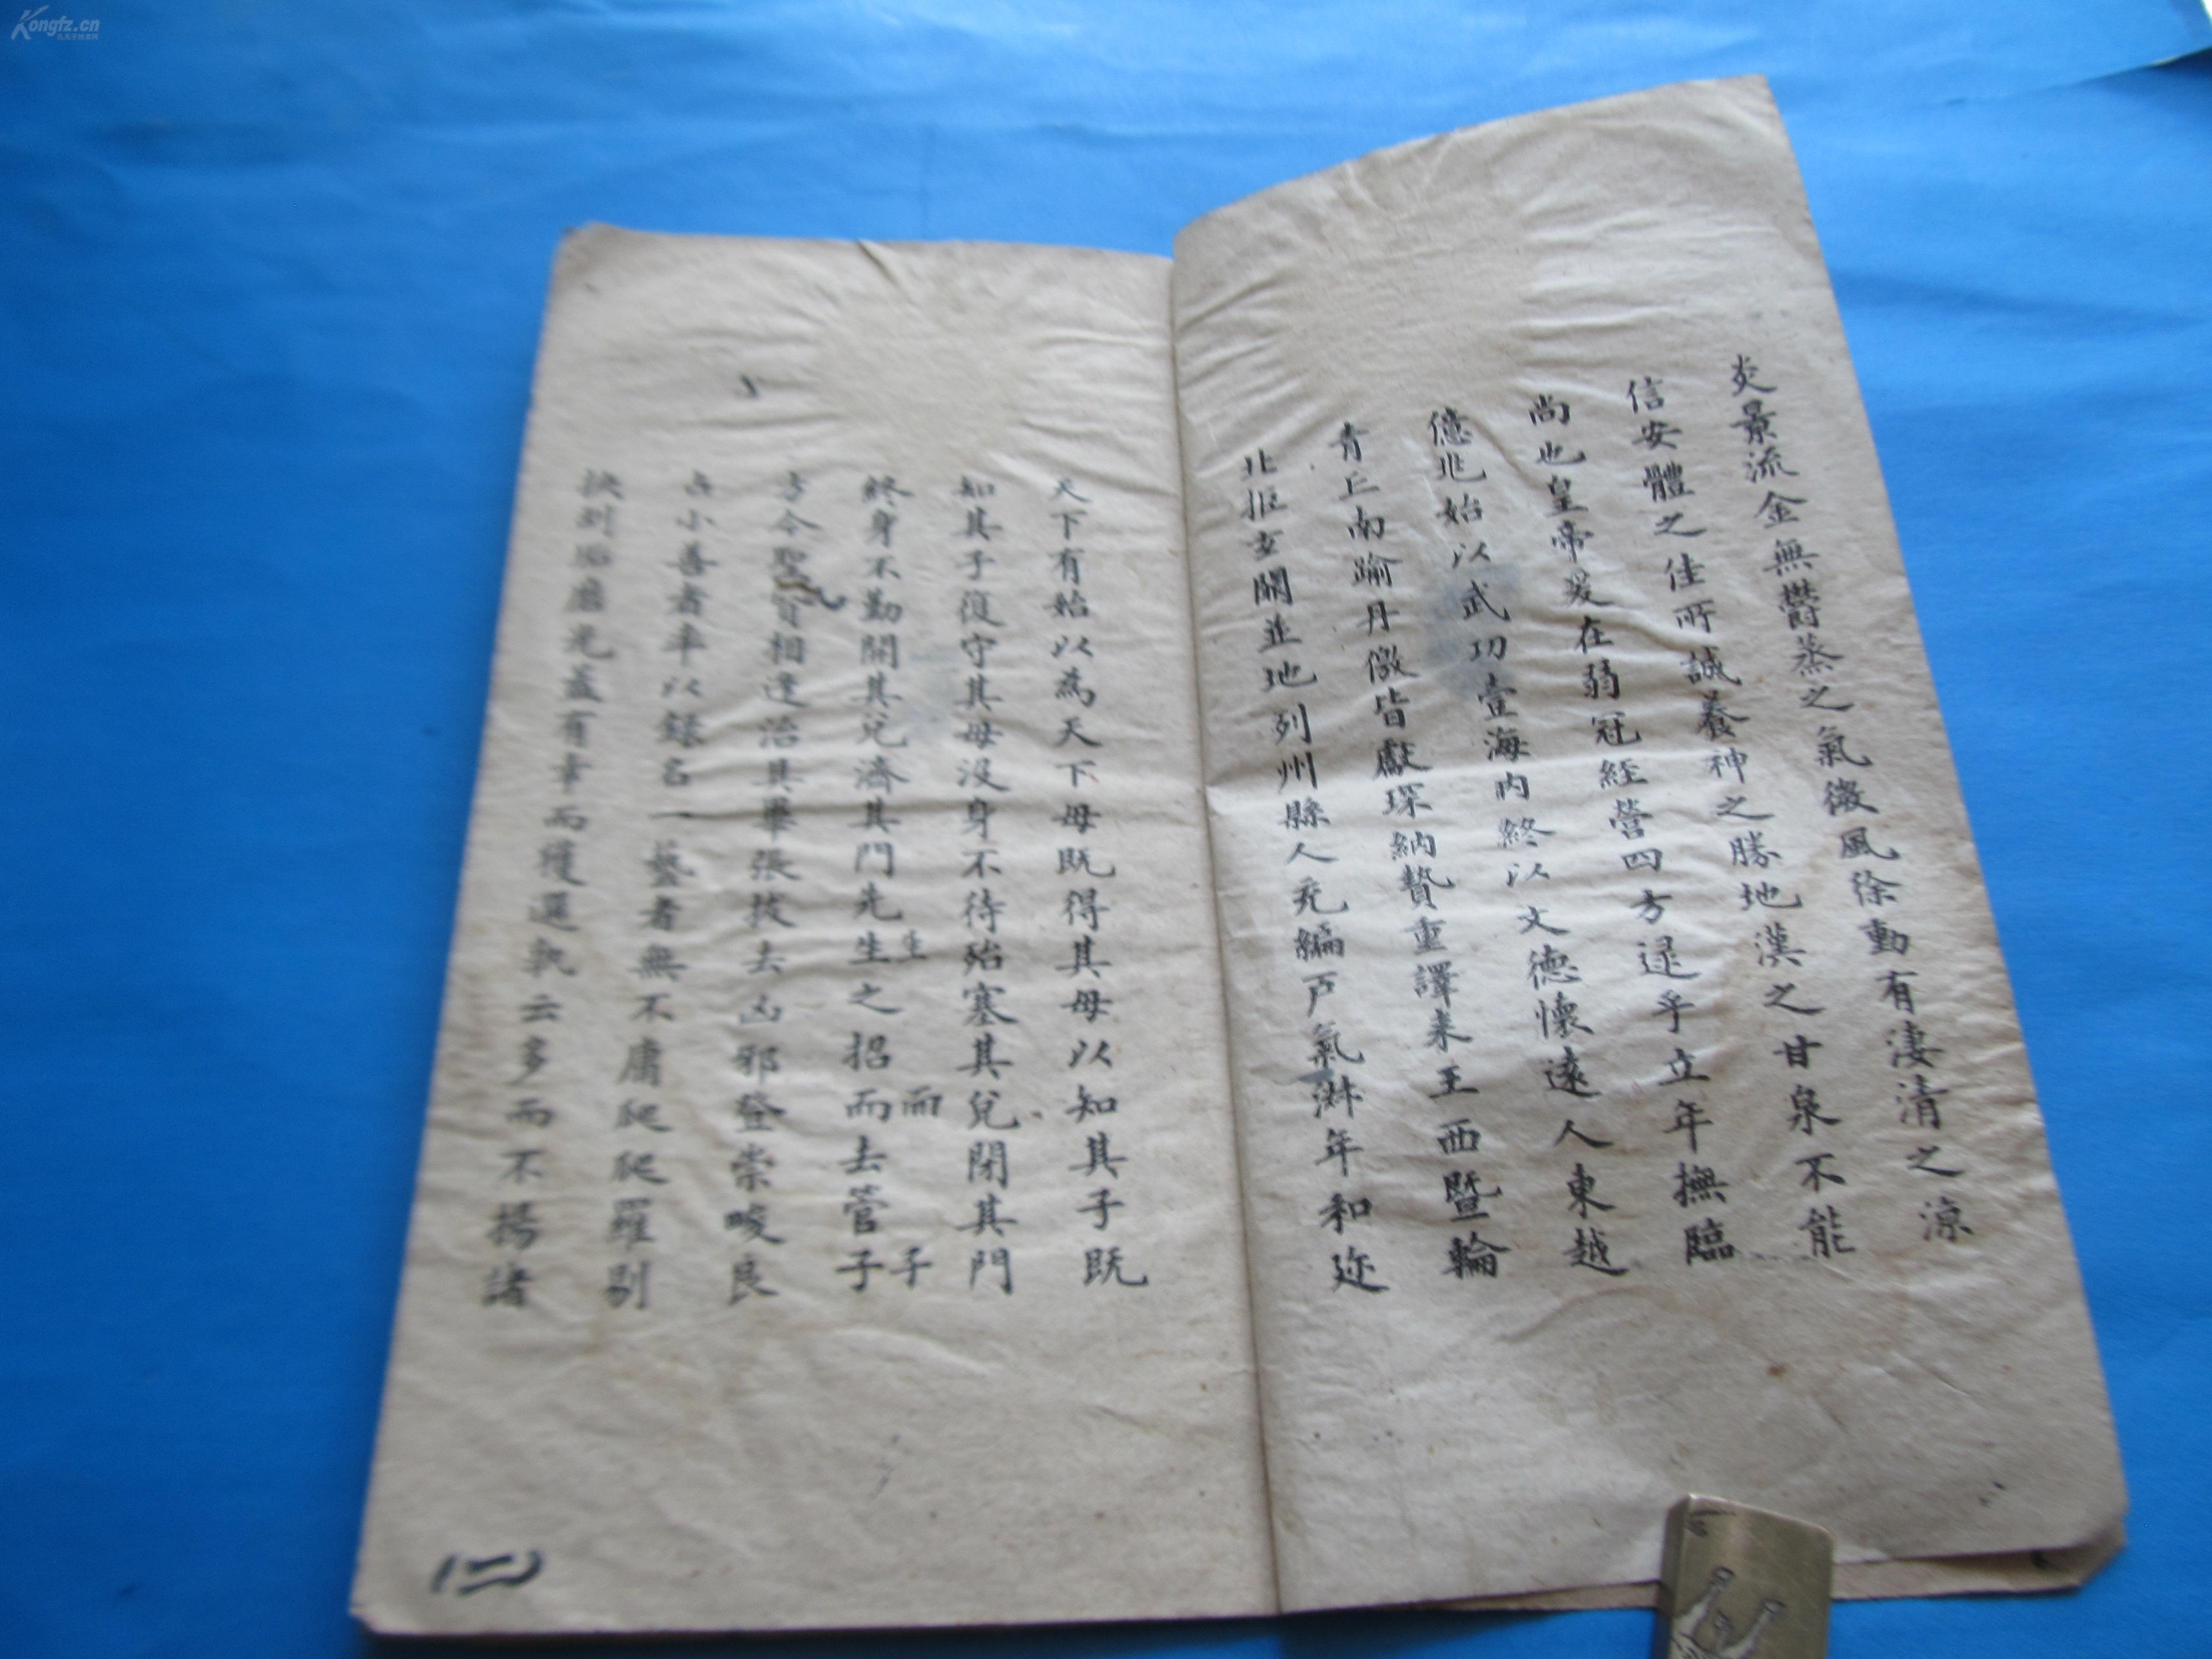 炎景流金無鬱蒸之氣微風徐動有淒清之涼
信安體之佳所誠養神之勝地漢之甘泉不能
尚也皇帝爰在弱冠經營四方逯乎立年撫臨
億兆始以武功壹海內終以文德懷遠人東越
青丘南踰丹儌皆獻琛納贄重譯来王西暨輪
北拒玄關並地列州縣人充編戶氣淋年和迩
天下有始以為天下母既得其母以知其子既
知其子復守其母沒身不待殆塞其兌閉其門
生而子
終身不勤開其兌濟其門先生之招而去管子
方今聖賢相逢治具畢張拔去凶邪登崇畯良
占小善者率以錄名一藝者無不庸爬爬羅剔
抉刮垢磨光蓋有幸而獲選孰云多而不揚諸
(二)
Kongfz.cn